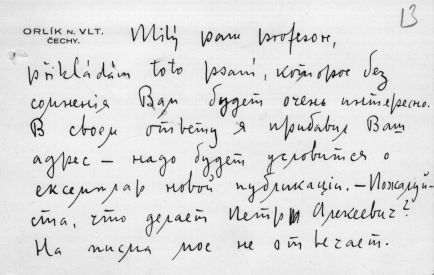 13
ORLÍK N. VLT.
ČECHY.
Milý pane profesore,
přikládám toto psaní, которое без
сомненія Вам будет очень интересно.
В своем ответу я прибавил Ваш
адрес — надо будет условится о
екземплар новой публикаціи. — Пожалуй-
ста, что делает Петр Алексеевич?
На писма мое не отвечает.